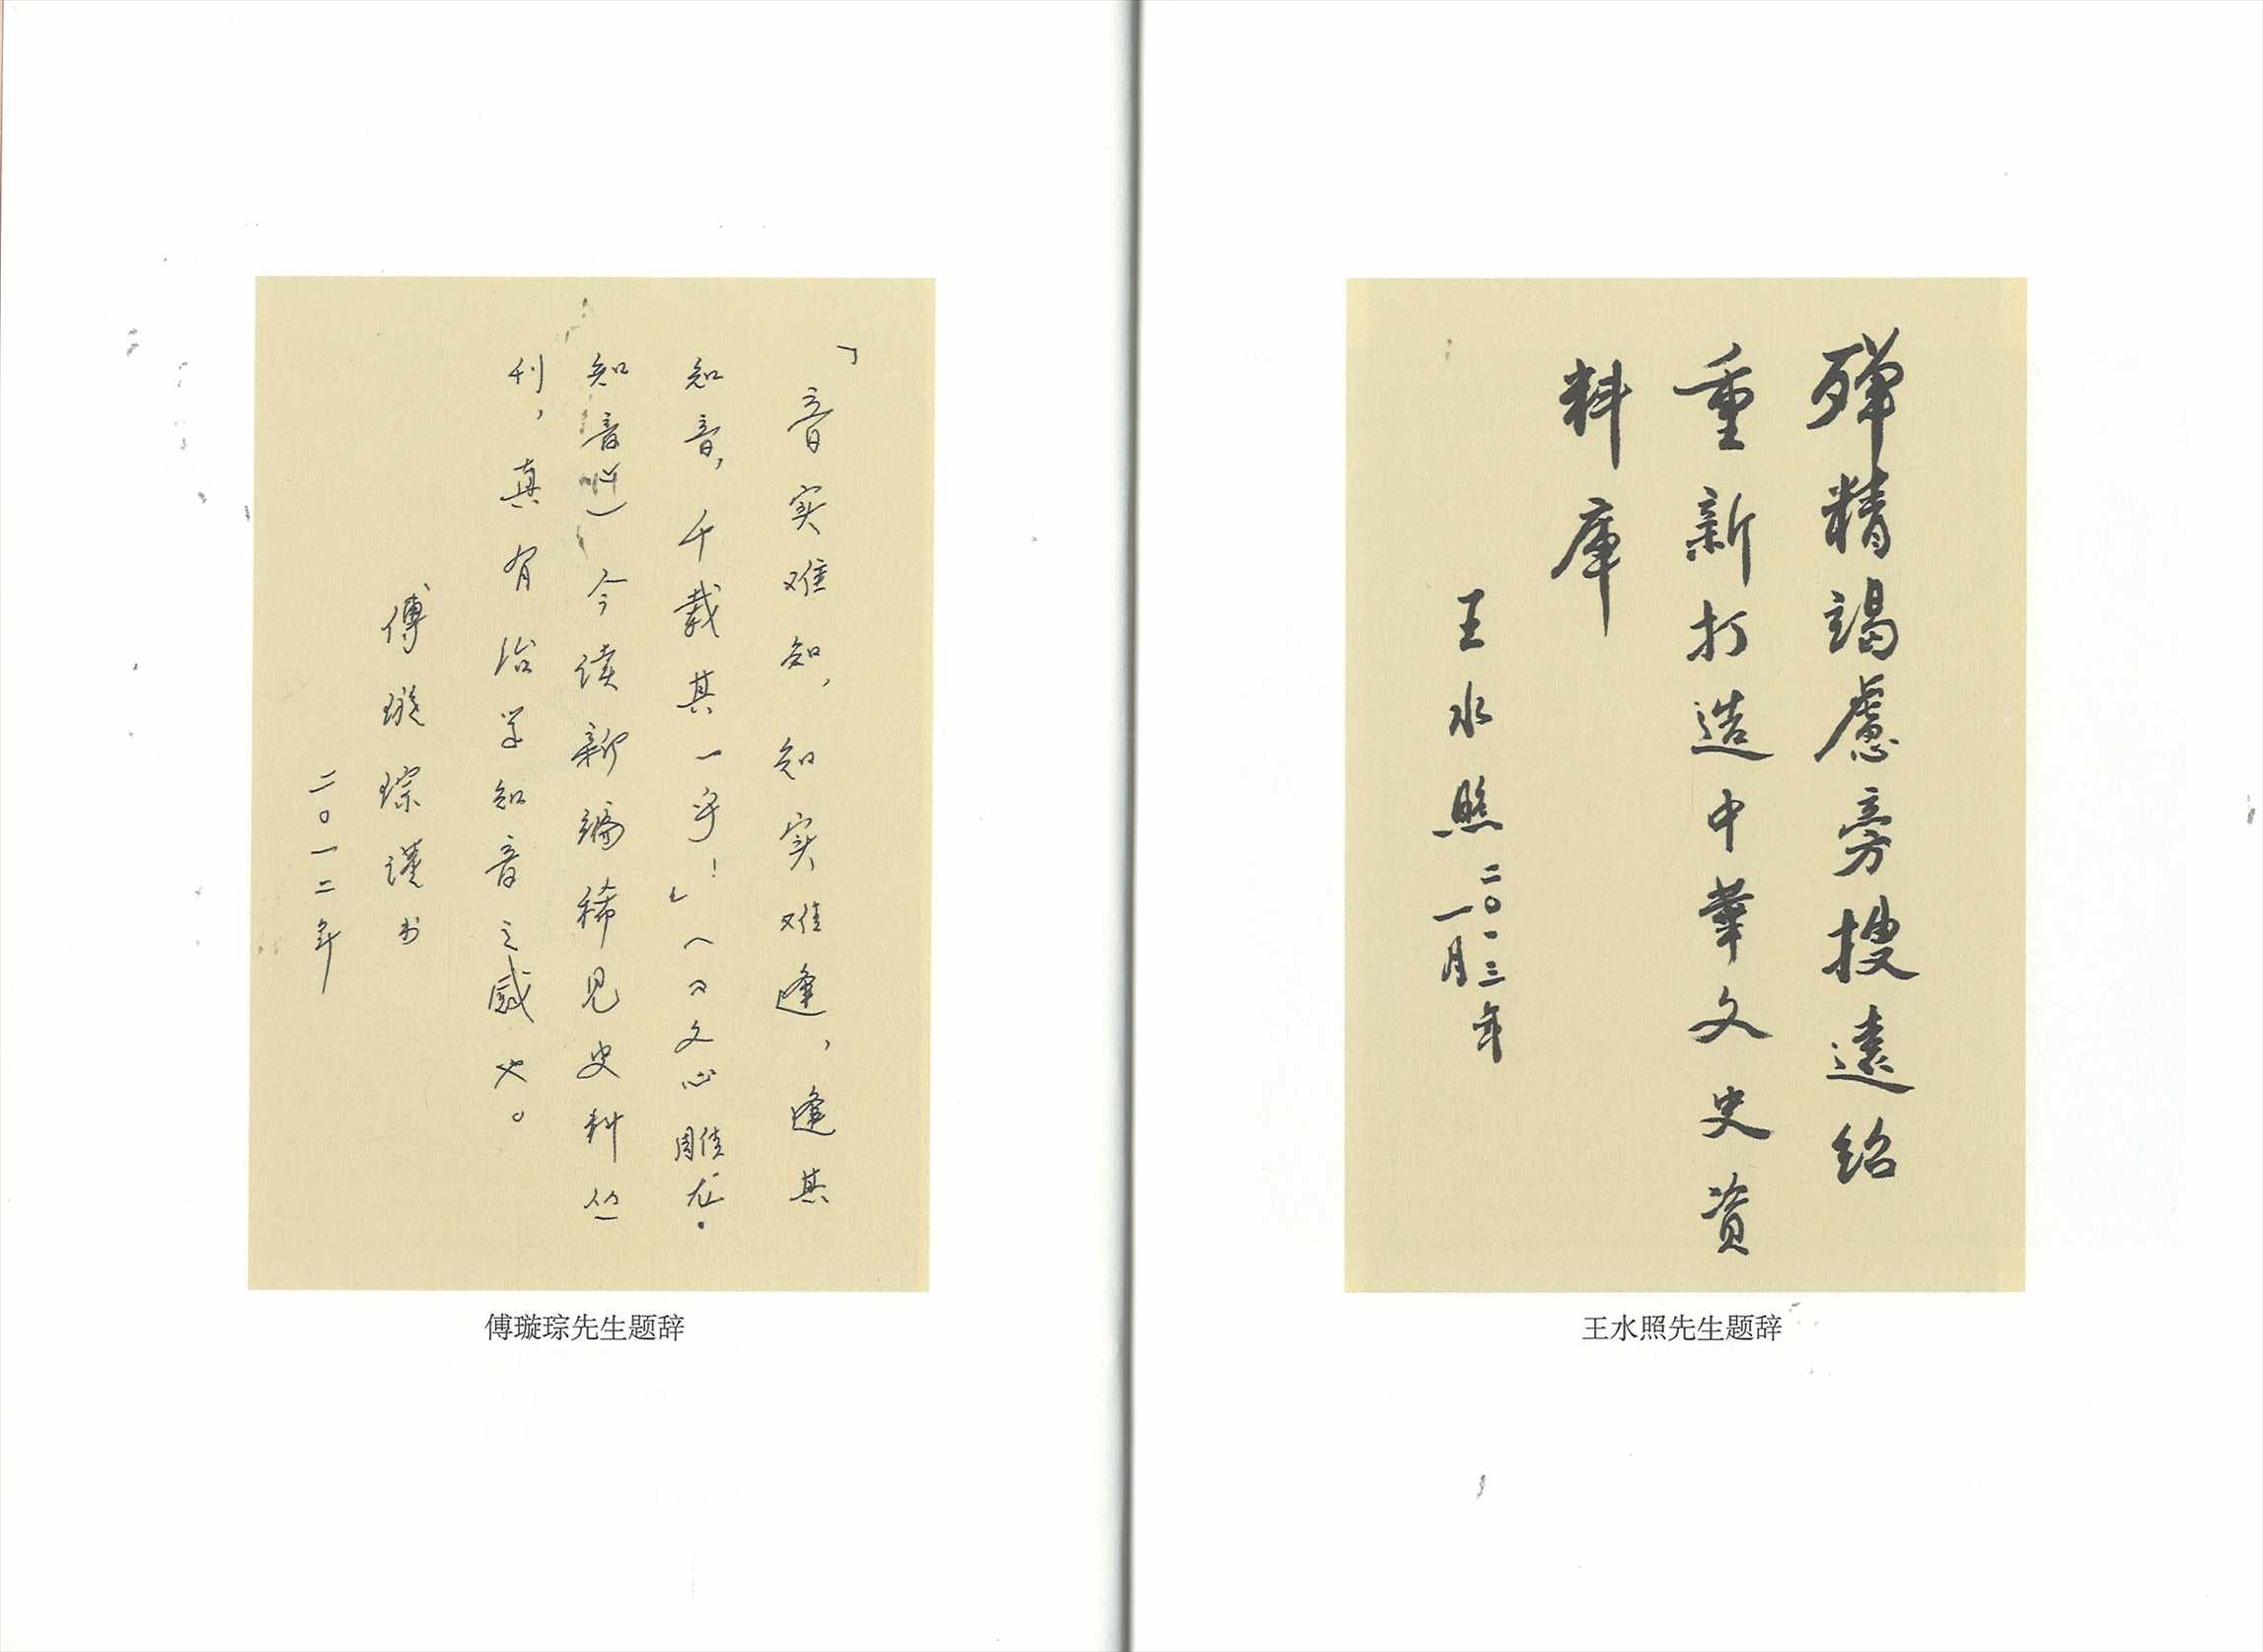 「音实难知，知实难逢，逢其
知音，千载其一乎！」（《文心雕龙·
知音》）今读新编稀见史料丛
刊，真有治学知音之感也。
傅璇琮谨书
二〇一二年
傅璇琮先生题辞
殫精竭慮旁搜遠紹
重新打造中華文史資
料庫
王水照 二〇一三年
一月
王水照先生题辞